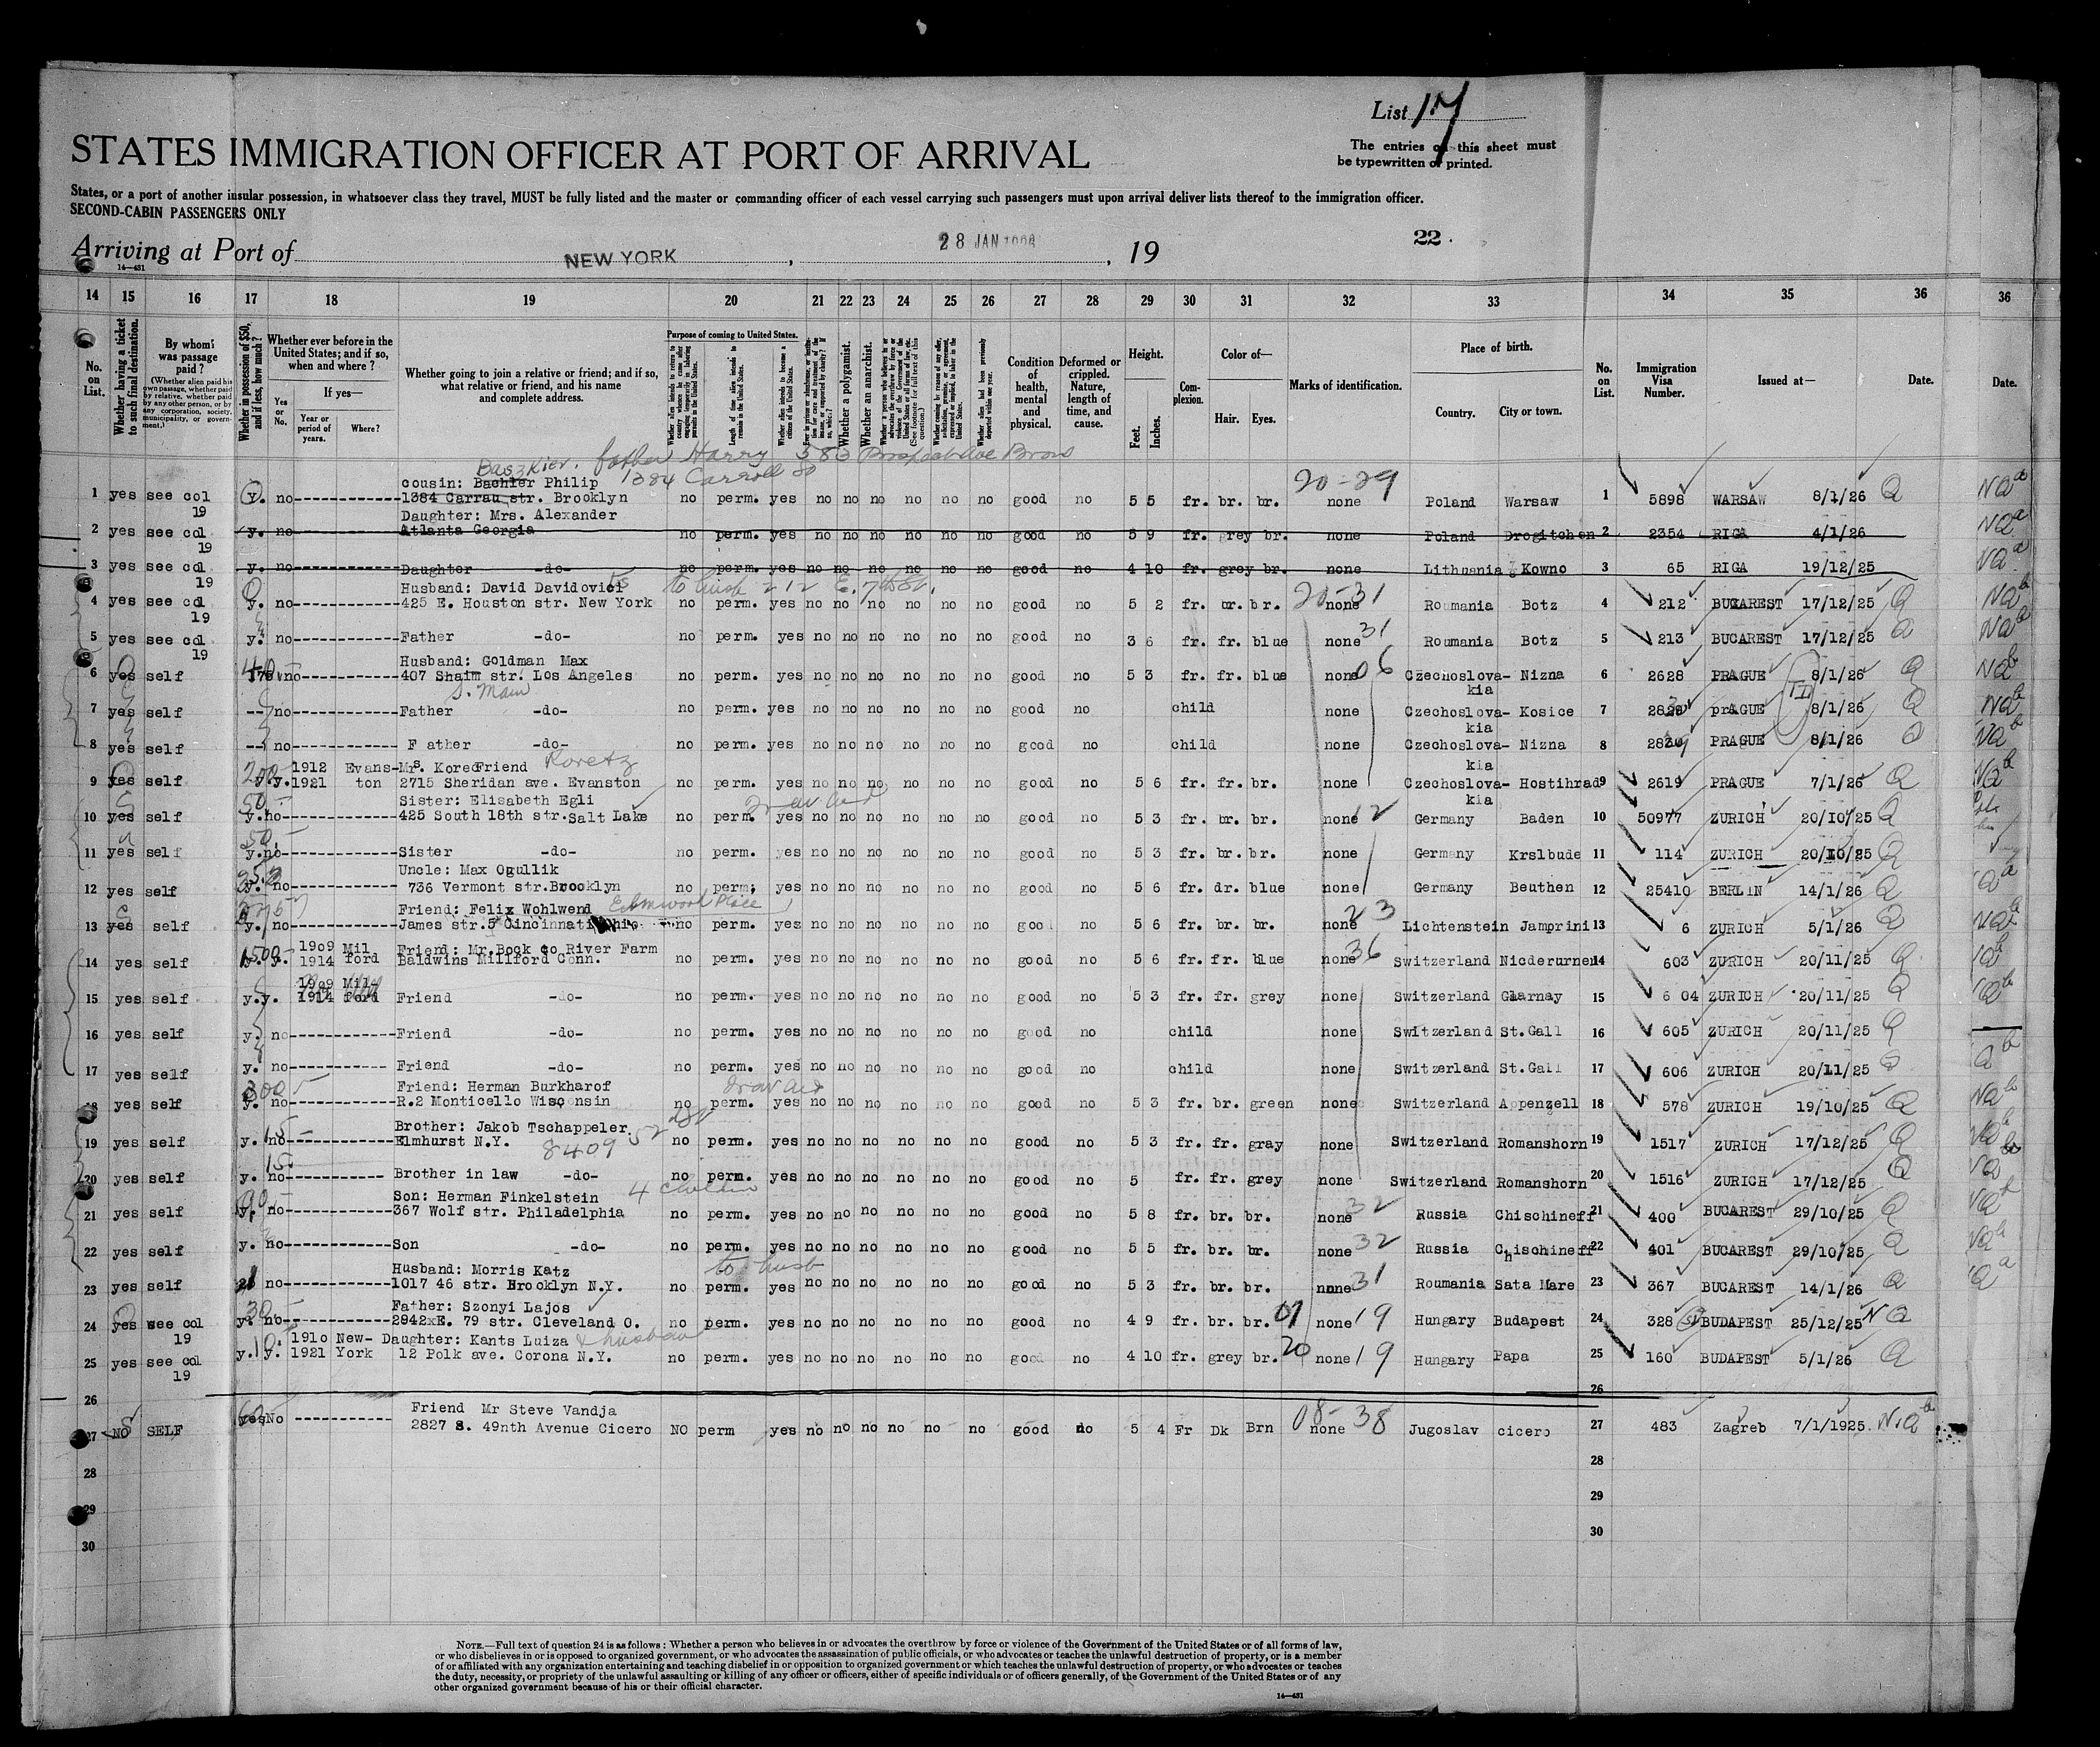 List 17
The entries on this sheet must
be typewritten or printed.
STATES IMMIGRATION OFFICER AT PORT OF ARRIVAL
States, or a port of another insular possession, in whatsoever class they travel, MUST be fully listed and the master or commanding officer of each vessel carrying such passengers must upon arrival deliver lists thereof to the immigration officer.
SECOND-CABIN PASSENGERS ONLY
Arriving at Port of NEW YORK, 28 JAN, 19 22
14—431
14 15 16 17 18 19 20 21 22 23 24 25 26 27 28 29 30 31 32 33 34 35 36 36
No. on List.
Whether having a ticket to such final destination.
By whom was passage paid?
(Whether alien paid his own passage, whether paid by relative, whether paid by any other person, or by any corporation, society, municipality, or government.)
Whether in possession of $50, and if less, how much?
Whether ever before in the United States; and if so, when and where?
If yes—
Yes or No.
Year or period of years.
Where?
Whether going to join a relative or friend; and if so, what relative or friend, and his name and complete address.
Purpose of coming to United States.
Length of time alien intends to remain in the United States.
Whether alien intends to become a citizen of the United States.
Whether a polygamist.
Whether an anarchist.
Condition of health, mental and physical.
Deformed or crippled. Nature, length of time, and cause.
Height.
Feet. Inches.
Complexion.
Color of—
Hair. Eyes.
Marks of identification.
Place of birth.
Country. City or town.
No. on List.
Immigration Visa Number.
Issued at—
Date.
Date.
Baszkier. father Harry 583 Prospect Ave Bronx
cousin: Bachler Philip 1384 Carroll St 20-29
1 yes see col 19 y. no 1384 Carrau str. Brooklyn no perm. yes no no no no no no good no 5 5 fr. br. br. none Poland Warsaw 1 5898 WARSAW 8/1/26 Q
Daughter: Mrs. Alexander
2 yes see col 19 y. no Atlanta Georgia no perm. yes no no no no no no good no 5 9 fr. grey br. none Poland Drogitchen 2 2354 RIGA 4/1/26
3 yes see col 19 y. no Daughter -do- no perm. yes no no no no no no good no 4 10 fr. grey br. none Lithuania Kowno 3 65 RIGA 19/12/25
Husband: David Davidovici to husb 212 E. 7th St. 20-31
4 yes see col 19 y. no 425 E. Houston str. New York no perm. yes no no no no no no good no 5 2 fr. br. br. none Roumania Botz 4 212 BUCAREST 17/12/25 Q
5 yes see col 19 y. no Father -do- no perm. yes no no no no no no good no 3 6 fr. fr. blue none 31 Roumania Botz 5 213 BUCAREST 17/12/25 Q
Husband: Goldman Max
6 yes self no 407 Shaim str. Los Angeles no perm. yes no no no no no no good no 5 3 fr. fr. blue none 06 Czechoslovakia Nizna 6 2628 PRAGUE 8/1/26 Q
S. Main
7 yes self -- no Father -do- no perm. yes no no no no no no good no child none Czechoslovakia Kosice 7 PRAGUE 8/1/26 Q
8 yes self -- no Father -do- no perm. yes no no no no no no good no child none Czechoslovakia Nizna 8 PRAGUE 8/1/26
1912 Evans- Mrs. Kore Friend Koretz
9 yes self y.y. 1921 ton 2715 Sheridan ave. Evanston no perm. yes no no no no no no good no 5 6 fr. fr. br. none Czechoslovakia Hostihrad 9 2619 PRAGUE 7/1/26 Q
Sister: Elisabeth Egli
10 yes self y. no 425 South 18th str. Salt Lake no perm. yes no no no no no no good no 5 3 fr. br. br. none 12 Germany Baden 10 50977 ZURICH 20/10/25 Q
11 yes self y. no Sister -do- no perm. yes no no no no no no good no 5 3 fr. br. br. none Germany Krslbude 11 114 ZURICH 20/10/25 Q
Uncle: Max Ogullik
12 yes self y. no 736 Vermont str. Brooklyn no perm. yes no no no no no no good no 5 6 fr. dr. blue none Germany Beuthen 12 25410 BERLIN 14/1/26 Q
Friend: Felix Wohlwend Elmwood Place
13 yes self y. no James str. 5 Cincinnati Ohio no perm. yes no no no no no no good no 5 6 fr. br. br. none 23 Lichtenstein Jamprini 13 6 ZURICH 5/1/26 Q
1909 Mil Friend: Mr. Bock co River Farm
14 yes self 1500 y. 1914 ford Baldwins Millford Conn. no perm. yes no no no no no no good no 5 6 fr. fr. blue none 36 Switzerland Niederurnen 14 603 ZURICH 20/11/25 Q
1909 Mil-
15 yes self y.y. 1914 ford Friend -do- no perm. yes no no no no no no good no 5 3 fr. fr. grey none Switzerland Glarnay 15 604 ZURICH 20/11/25 Q
16 yes self y. no Friend -do- no perm. yes no no no no no no good no child none Switzerland St. Gall 16 605 ZURICH 20/11/25 Q
17 yes self y. no Friend -do- no perm. yes no no no no no no good no child none Switzerland St. Gall 17 606 ZURICH 20/11/25
300 Friend: Herman Burkharof
18 yes self y. no R.2 Monticello Wisconsin no perm. yes no no no no no no good no 5 3 fr. br. green none Switzerland Appenzell 18 578 ZURICH 19/10/25 Q
Brother: Jakob Tschappeler
19 yes self y. no Elmhurst N.Y. 8409 52 no perm. yes no no no no no no good no 5 3 fr. fr. gray none Switzerland Romanshorn 19 1517 ZURICH 17/12/25 Q
20 yes self y. no Brother in law -do- no perm. yes no no no no no no good no 5 fr. fr. grey none Switzerland Romanshorn 20 1516 ZURICH 17/12/25 Q
Son: Herman Finkelstein 4 children
21 yes self y. no 367 Wolf str. Philadelphia no perm. yes no no no no no no good no 5 8 fr. br. br. none 32 Russia Chischineff 21 400 BUCAREST 29/10/25 Q
22 yes self y. no Son -do- no perm. yes no no no no no no good no 5 5 fr. br. br. none 32 Russia Chischineff 22 401 BUCAREST 29/10/25 Q
Husband: Morris Katz to husb
23 yes self no 1017 46 str. Brooklyn N.Y. no perm. yes no no no no no no good no 5 3 fr. br. br. none 31 Roumania Sata Mare 23 367 BUCAREST 14/1/26 Q
30 Father: Szonyi Lajos
24 yes see col 19 y. no 2942 E. 79 str. Cleveland O. no perm. yes no no no no no no good no 4 9 fr. br. br. 01 none 19 Hungary Budapest 24 328 BUDAPEST 25/12/25 NQ
10 1910 New- Daughter: Kants Luiza & husband
25 yes see col 19 y. y. 1921 York 12 Polk ave. Corona N.Y. no perm. yes no no no no no no good no 4 10 fr. grey br. 20 none 19 Hungary Papa 25 160 BUDAPEST 5/1/26 Q
26 26
Friend Mr Steve Vandja 08-38
27 NO SELF yes No 2827 S. 49nth Avenue Cicero NO perm yes no no no no no no good no 5 4 Fr Dk Brn none Jugoslav cicero 27 483 Zagreb 7/1/1925
28 28
29 29
30 30
NOTE.—Full text of question 24 is as follows: Whether a person who believes in or advocates the overthrow by force or violence of the Government of the United States or of all forms of law,
or who disbelieves in or is opposed to organized government, or who advocates the assassination of public officials, or who advocates or teaches the unlawful destruction of property, or is a member
of or affiliated with any organization entertaining and teaching disbelief in or opposition to organized government or which teaches the unlawful destruction of property, or who advocates or teaches
the duty, necessity, or propriety of the unlawful assaulting or killing of any officer or officers, either of specific individuals or of officers generally, of the Government of the United States or of any
other organized government because of his or their official character.
14—431